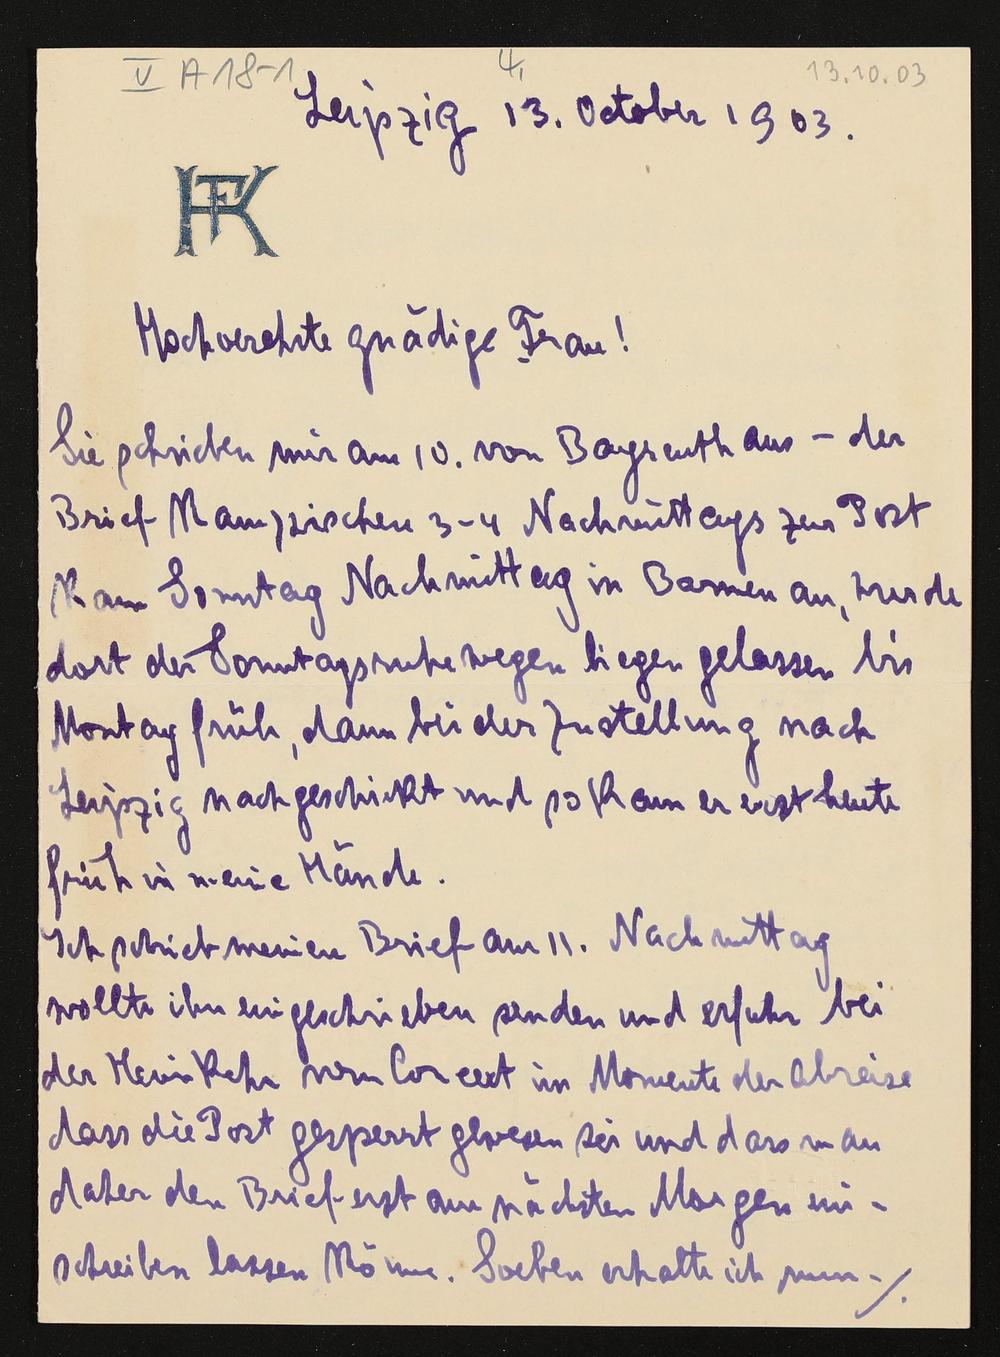 V A 18-1 4, 13.10.03
Leipzig 13. October 1903.
HFK
Hochverehrte gnädige Frau!
Sie schrieben mir am 10. von Bayreuth aus – der
Brief kam zwischen 3-4 Nachmittags zur Post
kam Sonntag Nachmittag in Barmen an, wurde
dort der Sonntagsruhe wegen liegen gelassen bis
Montag früh, dann bei der Zustellung nach
Leipzig nachgeschickt und so kam er erst heute
früh in meine Hände.
Ich schrieb meinen Brief am 11. Nachmittag
wollte ihn eingeschrieben senden und erfuhr bei
der Heimkehr vom Concert im Momente der Abreise
dass die Post gesperrt gewesen sei und dass man
daher den Brief erst am nächsten Morgen ein-
schreiben lassen könne. Soeben erhalte ich nun-/.